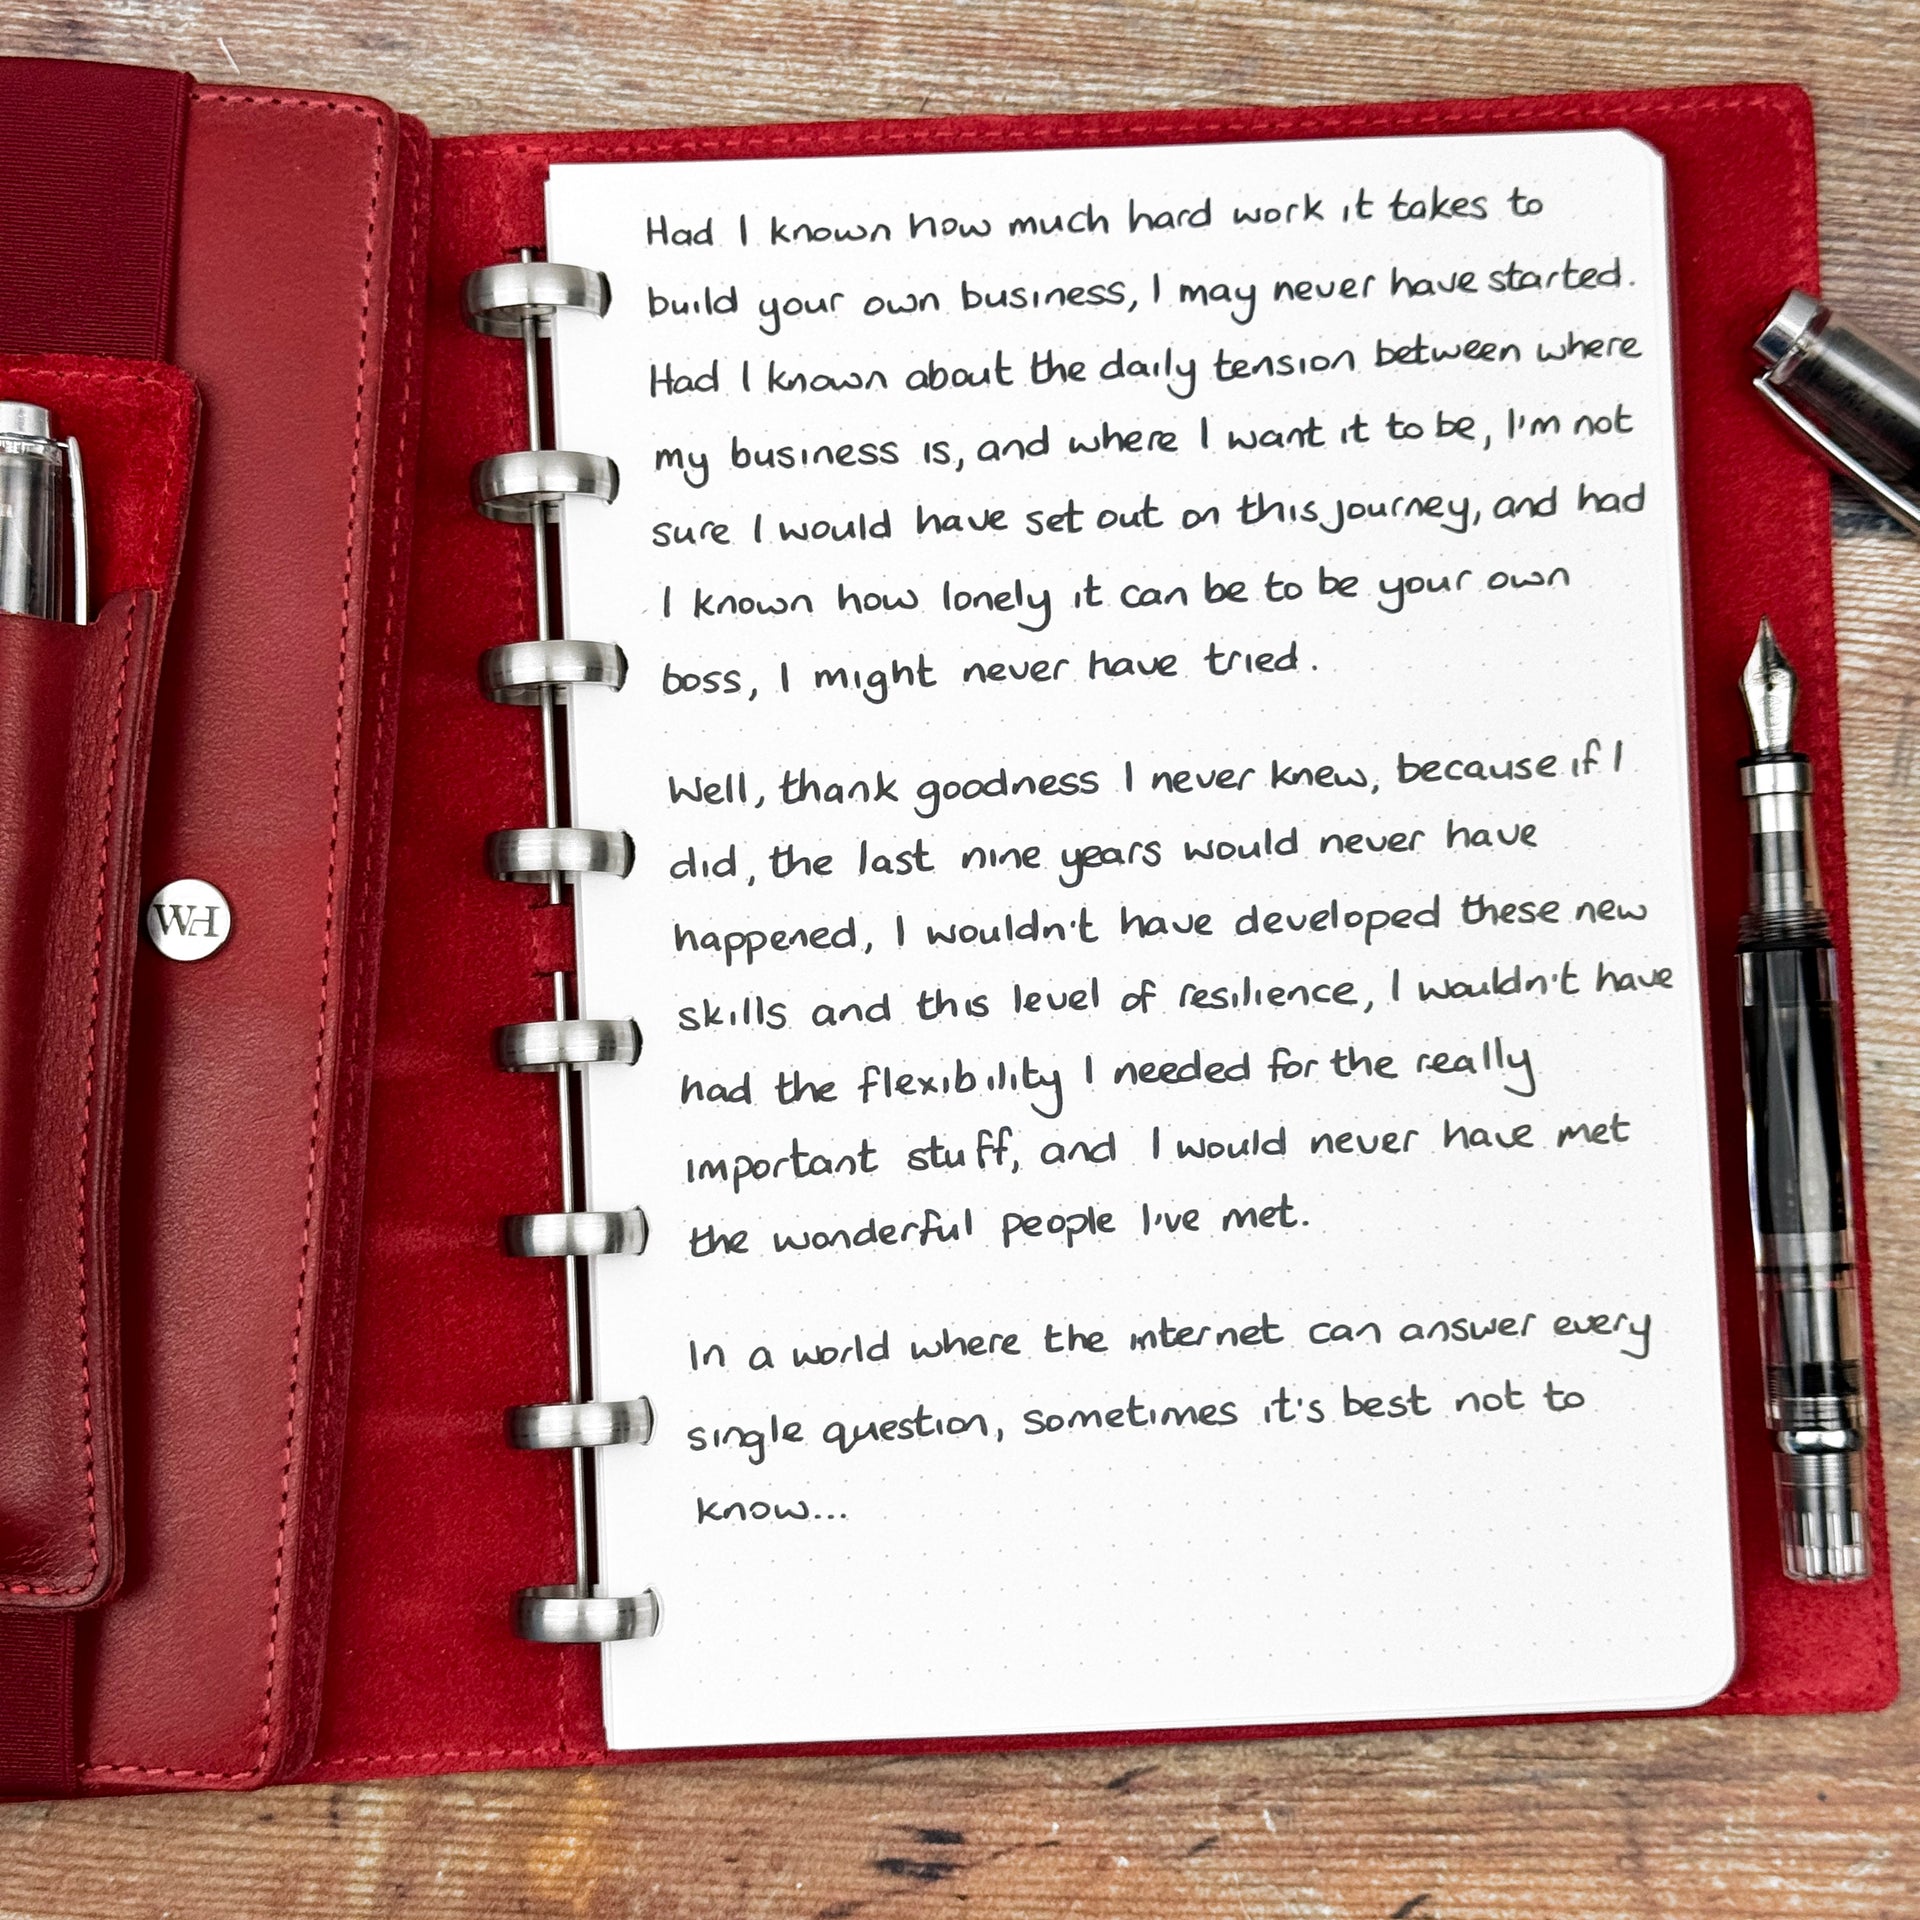 Had I known how much hard work it takes to
build your own business, I may never have started.
Had I known about the daily tension between where
my business is, and where I want it to be, I'm not
sure I would have set out on this journey, and had
I known how lonely it can be to be your own
boss, I might never have tried.
Well, thank goodness I never knew, because if I
did, the last nine years would never have
happened, I wouldn't have developed these new
skills and this level of resilience, I wouldn't have
had the flexibility I needed for the really
important stuff, and I would never have met
the wonderful people I've met.
In a world where the internet can answer every
single question, sometimes it's best not to
know...
WH